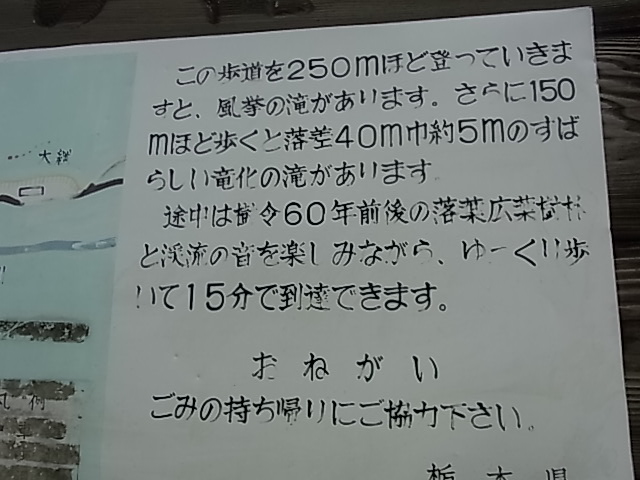 この歩道を250mほど登っていきま
すと、風挙の滝があります。さらに150
mほど歩くと落差40m巾約5mのすば
らしい竜化の滝があります。
途中は樹令60年前後の落葉広葉樹林
と渓流の音を楽しみながら、ゆっくり歩
いて15分で到達できます。
おねがい
ごみの持ち帰りにご協力下さい。
栃木県
凡例